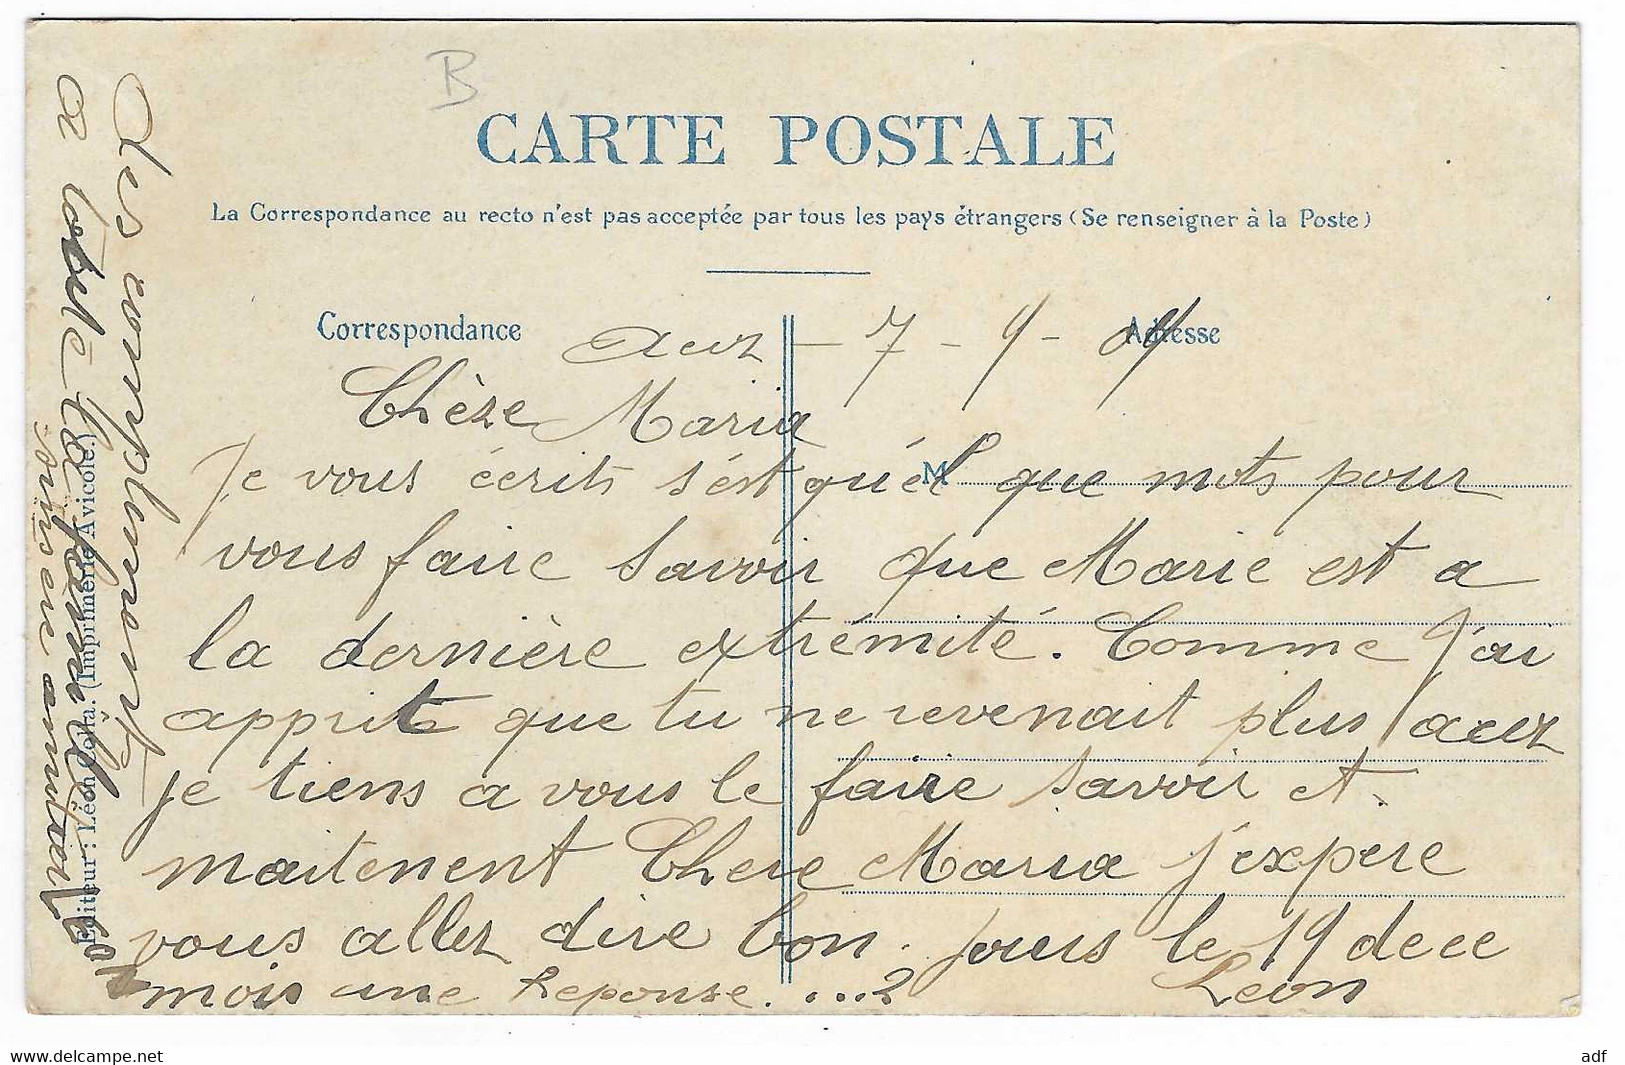 B
CARTE POSTALE
La Correspondance au recto n'est pas acceptée par tous les pays étrangers (Se renseigner à la Poste)
Correspondance
Adresse
Auz - 7 - 9 - 09
Chère Maria
Je vous écrits s'est qué'l que mots pour
M
vous faire savoir que Marie est a
la dernière extrémité. Comme j'ai
apprit que tu ne revenait plus / auz
je tiens a vous le faire savoir et
maitenent Chere Maria j'expere
vous allez dire bon jours le 19 de ce
mois une Reponse....?
Léon
Les compliments
a toute la famille
Editeur: Léon Colta. (Imprimerie Avicole.)